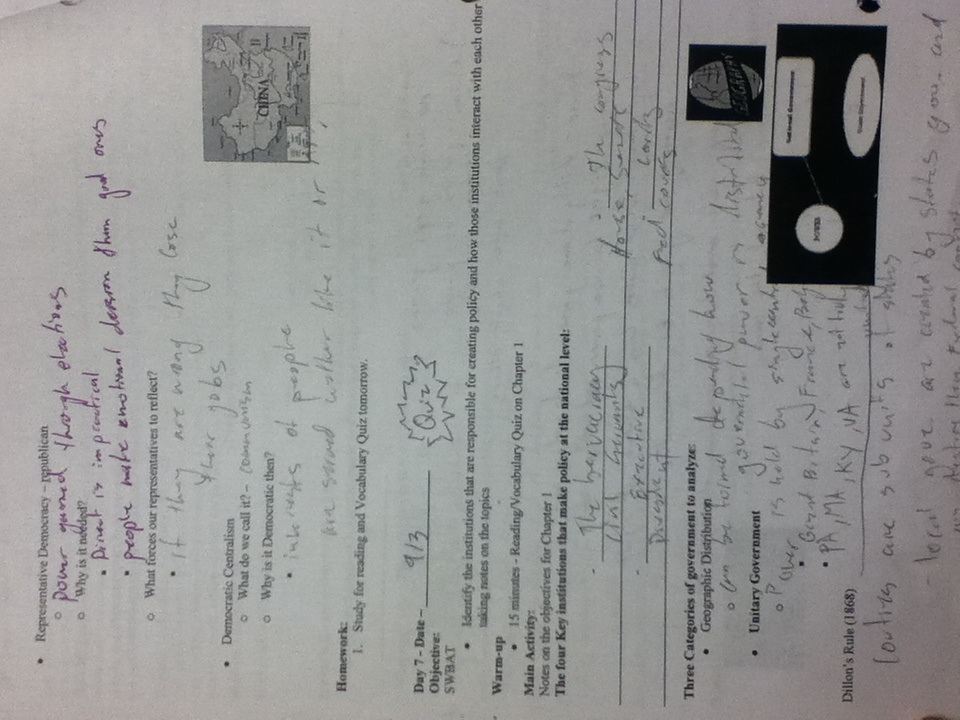 • Representative Democracy – republican
○ power gained through elections
○ Why is it needed?
▪ Direct is impractical
▪ people make emotional decision them good ones
○ What forces our representatives to reflect?
▪ if they are wrong they lose
their jobs
• Democratic Centralism
○ What do we call it? – communism
○ Why is it Democratic then?
▪ interests of people
are served wether like it or
CHINA
Homework:
1. Study for reading and Vocabulary Quiz tomorrow.
Day 7 - Date – 9/3
Quiz
Objective:
SWBAT
• Identify the institutions that are responsible for creating policy and how those institutions interact with each other
taking notes on the topics
Warm-up
• 15 minutes - Reading/Vocabulary Quiz on Chapter 1
Main Activity:
Notes on the objectives for Chapter 1
The four Key institutions that make policy at the national level:
- The burvacracy
Civil Servants
- The congress
House, Senate
- Executive
President
- Courts
Fed courts
Three Categories of government to analyze:
• Geographic Distribution
○ can be formed depending how
governmental power is distributed
GEOGRAPHY
• Unitary Government
○ Power is held by single central agency
▪ Great Britain, France,
▪ PA, MA, KY, VA are not truly
National Government
POWER
State Government
Dillon's Rule (1868)
Counties are sub units of states
- local gove. are created by states gov. and